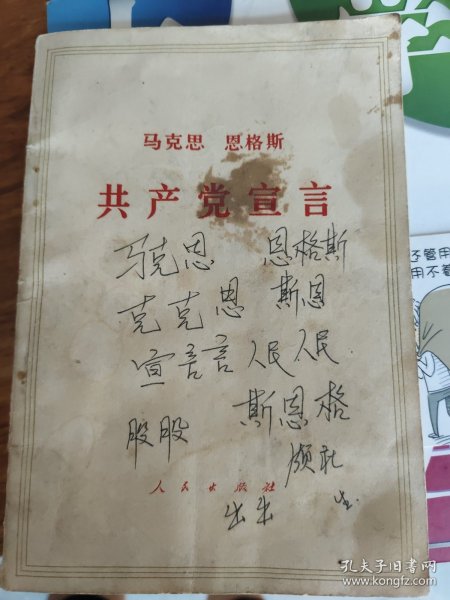 马克思 恩格斯
共产党宣言
马克思 恩格斯
克克思 斯恩
宣言言 人民人民
股股 斯恩格
人民出版社
出出
子管用
用不管
孔夫子旧书网
www.kongfz.com